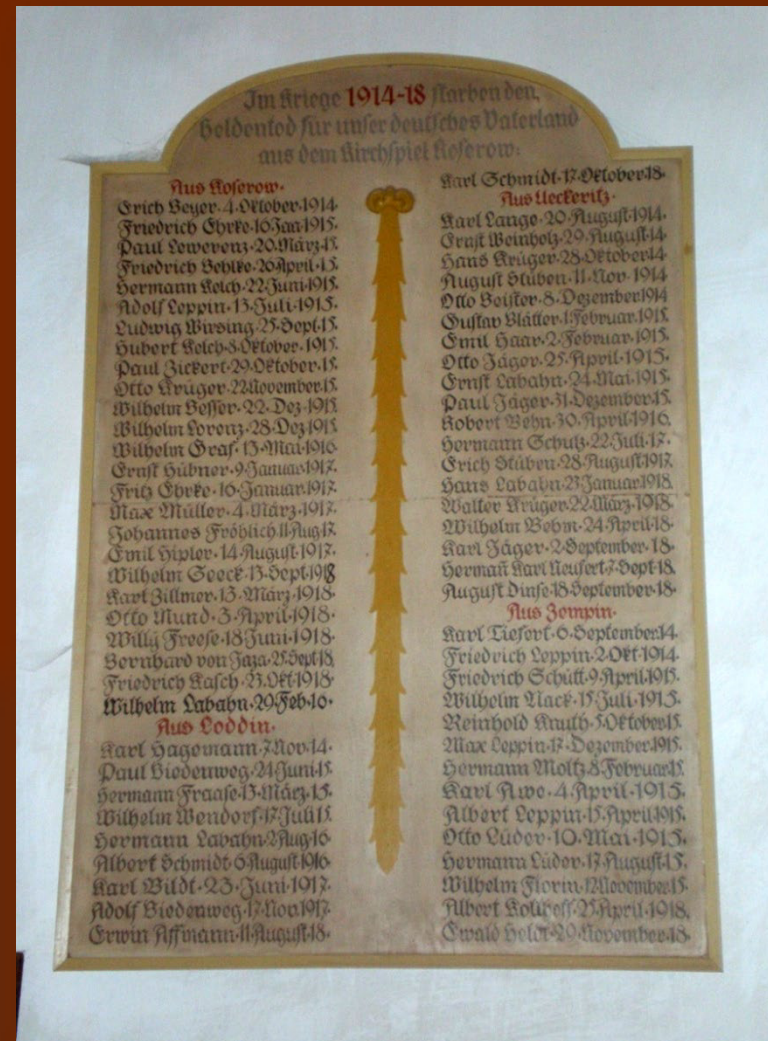 Im Kriege 1914-18 starben den
Heldentod für unser deutsches Vaterland
aus dem Kirchspiel Koserow:
Aus Koserow.
Erich Beyer·4·Oktober·1914
Friedrich Ehrke·16·Jan·1915·
Paul Lewerenz·20·März·15·
Friedrich Behlke·26·April·15·
Hermann Kelch·22·Juni·1915·
Adolf Leppin·13·Juli·1915·
Ludwig Wirsing·25·Sept·15·
Hubert Kelch·8·Oktober·1915·
Paul Zickert·29·Oktober·15·
Otto Krüger·22·November·15·
Wilhelm Besser·22·Dez·1915·
Wilhelm Lorenz·28·Dez·1915·
Wilhelm Graf·13·Mai·1916·
Ernst Hübner·9·Januar·1917·
Fritz Ehrke·16·Januar·1917·
Max Müller·4·März·1917·
Johannes Fröhlich·11·Aug·17·
Emil Hipler·14·August·1917·
Wilhelm Seeck·13·Sept·1918
Karl Zillmer·13·März·1918·
Otto Mund·3·April·1918·
Willy Freese·18·Juni·1918·
Bernhard von Jaza·25·Sept·18·
Friedrich Kasch·23·Okt·1918·
Wilhelm Labahn·29·Feb·16·
Aus Loddin·
Karl Hagemann·7·Nov·14·
Paul Biedenweg·24·Juni·15·
Hermann Fraase·13·März·15·
Wilhelm Wendorf·17·Juli·15·
Hermann Labahn·2·Aug·16·
Albert Schmidt·6·August·1916·
Karl Wildt·23·Juni·1917·
Adolf Biedenweg·17·Nov·1917·
Erwin Affmann·11·August·18·
Karl Schmidt·17·Oktober·18·
Aus Ueckeritz·
Karl Lange·20·August·1914·
Ernst Weinholz·29·August·14·
Hans Krüger·28·Oktober·14
August Stüben·11·Nov·1914
Otto Beister·8·Dezember·1914
Gustav Blätter·1·Februar·1915·
Emil Haar·2·Februar·1915·
Otto Jäger·25·April·1915·
Ernst Labahn·24·Mai·1915·
Paul Jäger·31·Dezember·15·
Robert Behn·30·April·1916·
Hermann Schulz·22·Juli·17·
Erich Stüben·28·August·1917
Hans Labahn·23·Januar·1918·
Walter Krüger·22·März·1918·
Wilhelm Behm·24·April·18·
Karl Jäger·2·September·18·
Hermañ Karl Neufert·7·Sept·18·
August Dinse·18·September·18·
Aus Zempin·
Karl Tiefert·6·September·14·
Friedrich Leppin·2·Okt·1914·
Friedrich Schütt·9·April·1915·
Wilhelm Nack·15·Juli·1915·
Reinhold Knuth·5·Oktober·15·
Max Leppin·17·Dezember·1915·
Hermann Moltz·8·Februar·15·
Karl Awe·4·April·1915·
Albert Leppin·15·April·1915·
Otto Lüder·10·Mai·1915·
Hermann Lüder·17·August·15·
Wilhelm Fiorin·12·November·15·
Albert 25·April·1918·
Ewald Heldt·29·November·18·